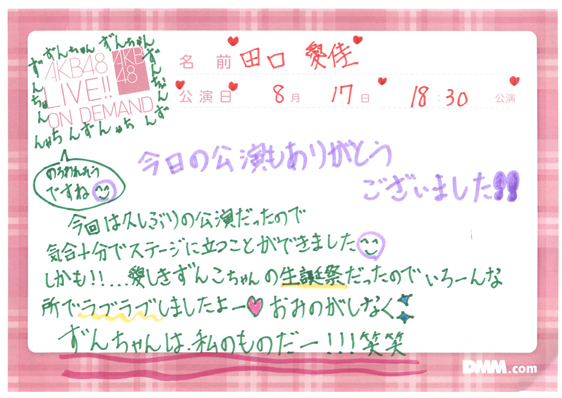 ずんちゃんずんちゃんずんちゃんずんちゃんずんちゃんずんちゃん
AKB48
LIVE!!
ON DEMAND
AKB
48
名前 田口 愛佳
公演日 8月 17日 18:30 公演
今日の公演もありがとう
ございました!!
のろわれそう
ですね
今回は久しぶりの公演だったので
気合十分でステージに立つことができました
しかも!!...愛しきずんこちゃんの生誕祭だったのでいろーんな
所でラブラブしましたよー おみのがしなく
ずんちゃんは、私のものだー!!!笑笑
DMM.com